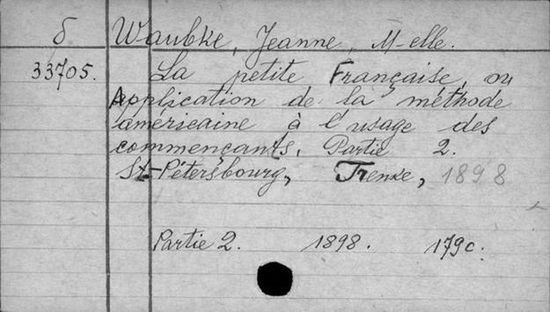 б Waubke, Jeanne, M-elle.
33705. La petite Française, ou
Application de la méthode
américaine à l'usage des
commençants. Partie 2.
St-Pétersbourg, Trenke, 1898
Partie 2. 1898. 179 с.